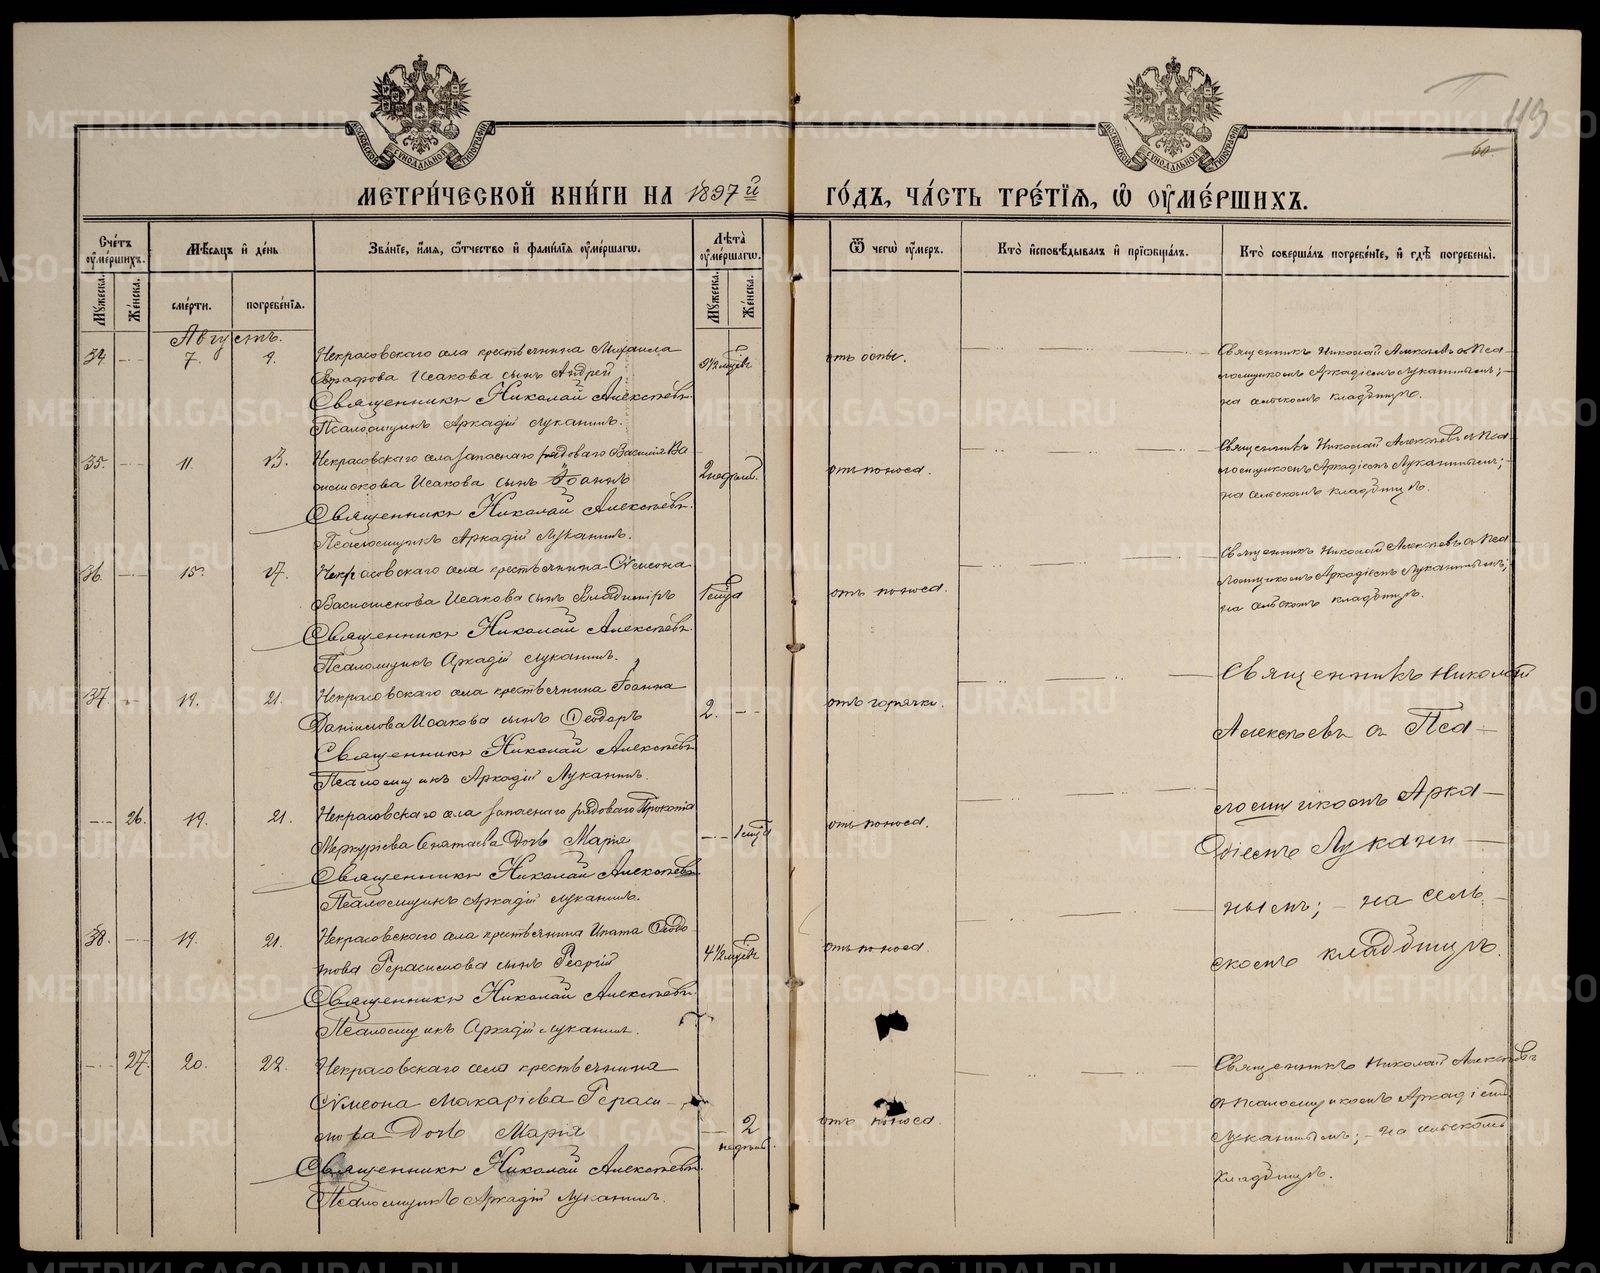 МЕТРИ́ЧЕСКОЙ КНИ́ГИ НА 1897й ГО́ДЪ, ЧА́СТЬ ТРЕ́ТЇѦ, Ѡ҆ ОУ҆МЕ́РШИХЪ.
113
60
Сче́тъ оу҆ме́ршихъ.
Мѣ́сѧцъ и҆ де́нь
Зва́нїе, и҆́мѧ, ѻ҆́тчество и҆ фами́лїѧ оу҆ме́ршагѡ.
Лѣ́та оу҆ме́ршагѡ.
Ѿ чегѡ̀ оу҆́меръ.
Кто̀ и҆сповѣ́дывалъ и҆ прїѡбща́лъ.
Кто̀ соверша́лъ погребе́нїе, и҆ гдѣ̀ погребены̀.
Мꙋ́жеска. Же́нска. сме́рти. погребе́нїѧ. Мꙋ́жеска. Же́нска.
Августъ.
34 7. 9. Некрасовскаго села крестьянина Михаила
Исакова сынъ Андрей
Священникъ Николай Алексѣевъ.
Псаломщикъ Аркадій Луканинъ.
отъ оспы.
Священникъ Николай Алексѣевъ съ Пса-
ломщикомъ Аркадіемъ Луканинымъ;
на сельскомъ кладбищѣ.
35. 11. 13. Некрасовскаго села запаснаго рядоваго Василія Ва
силискова Исакова сынъ Іоаннъ
Священникъ Николай Алексѣевъ.
Псаломщикъ Аркадій Луканинъ.
2 недѣль.
отъ поноса.
Священникъ Николай Алексѣевъ съ Пса-
ломщикомъ Аркадіемъ Луканинымъ;
на сельскомъ кладбищѣ.
36. 15. 17. Некрасовскаго села крестьянина Сѵмеона
Василискова Исакова сынъ Владиміръ
Священникъ Николай Алексѣевъ.
Псаломщикъ Аркадій Луканинъ.
отъ поноса.
Священникъ Николай Алексѣевъ съ Пса
ломщикомъ Аркадіемъ Луканинымъ;
на сельскомъ кладбищѣ.
37. 19. 21. Некрасовскаго села крестьянина Іоанна
Даніилова Исакова сынъ Ѳеодоръ
Священникъ Николай Алексѣевъ
Псаломщикъ Аркадій Луканинъ.
2.
отъ горячки.
Священникъ Николай
Алексѣевъ съ Пса-
ломщикомъ Арка-
діемъ Лукани-
нымъ; - на сель-
скомъ кладбищѣ.
26. 19. 21. Некрасовскаго села запаснаго рядоваго Прокопія
Меркурьева Игнатьева дочь Марія
Священникъ Николай Алексѣевъ
Псаломщикъ Аркадій Луканинъ.
отъ поноса.
38. 19. 21. Некрасовскаго села крестьянина Ипата Ѳедо
това Герасимова сынъ Георгій
Священникъ Николай Алексѣевъ.
Псаломщикъ Аркадій Луканинъ.
отъ поноса.
27. 20. 22. Некрасовскаго села крестьянина
Сѵмеона Макаріева Гераси-
мова дочь Марія
Священникъ Николай Алексѣевъ.
Псаломщикъ Аркадій Луканинъ.
2 недѣль.
отъ поноса.
Священникъ Николай Алексѣевъ
съ Псаломщикомъ Аркадіемъ
Луканинымъ; - на сельскомъ
кладбищѣ.
METRIKI.GASO-URAL.RU